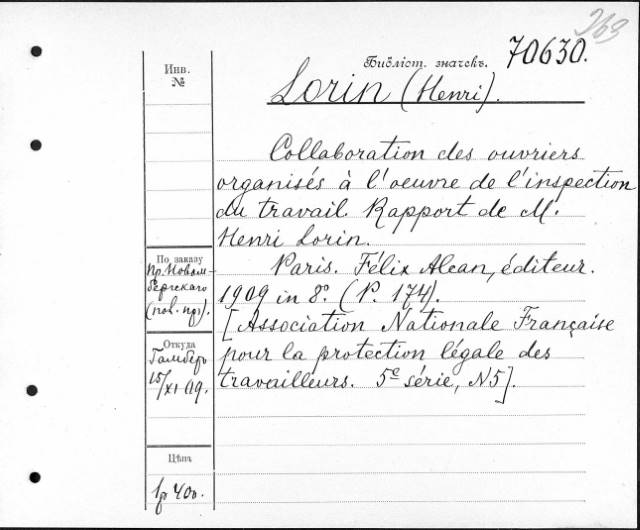 269
Библіот. значекъ. 70630.
Инв.
№
Lorin (Henri).
Collaboration des ouvriers
organisés à l'oeuvre de l'inspection
du travail. Rapport de M.
Henri Lorin.
Paris. Félix Alcan, éditeur.
1909 in 8º. (P. 174).
[Association Nationale Française
pour la protection légale des
travailleurs. 5e série, N5].
По заказу
Пр. Новом-
бергскаго
(нов. пр).
Откуда
Гамберъ
15/XI 09.
Цѣна
1р 40к.